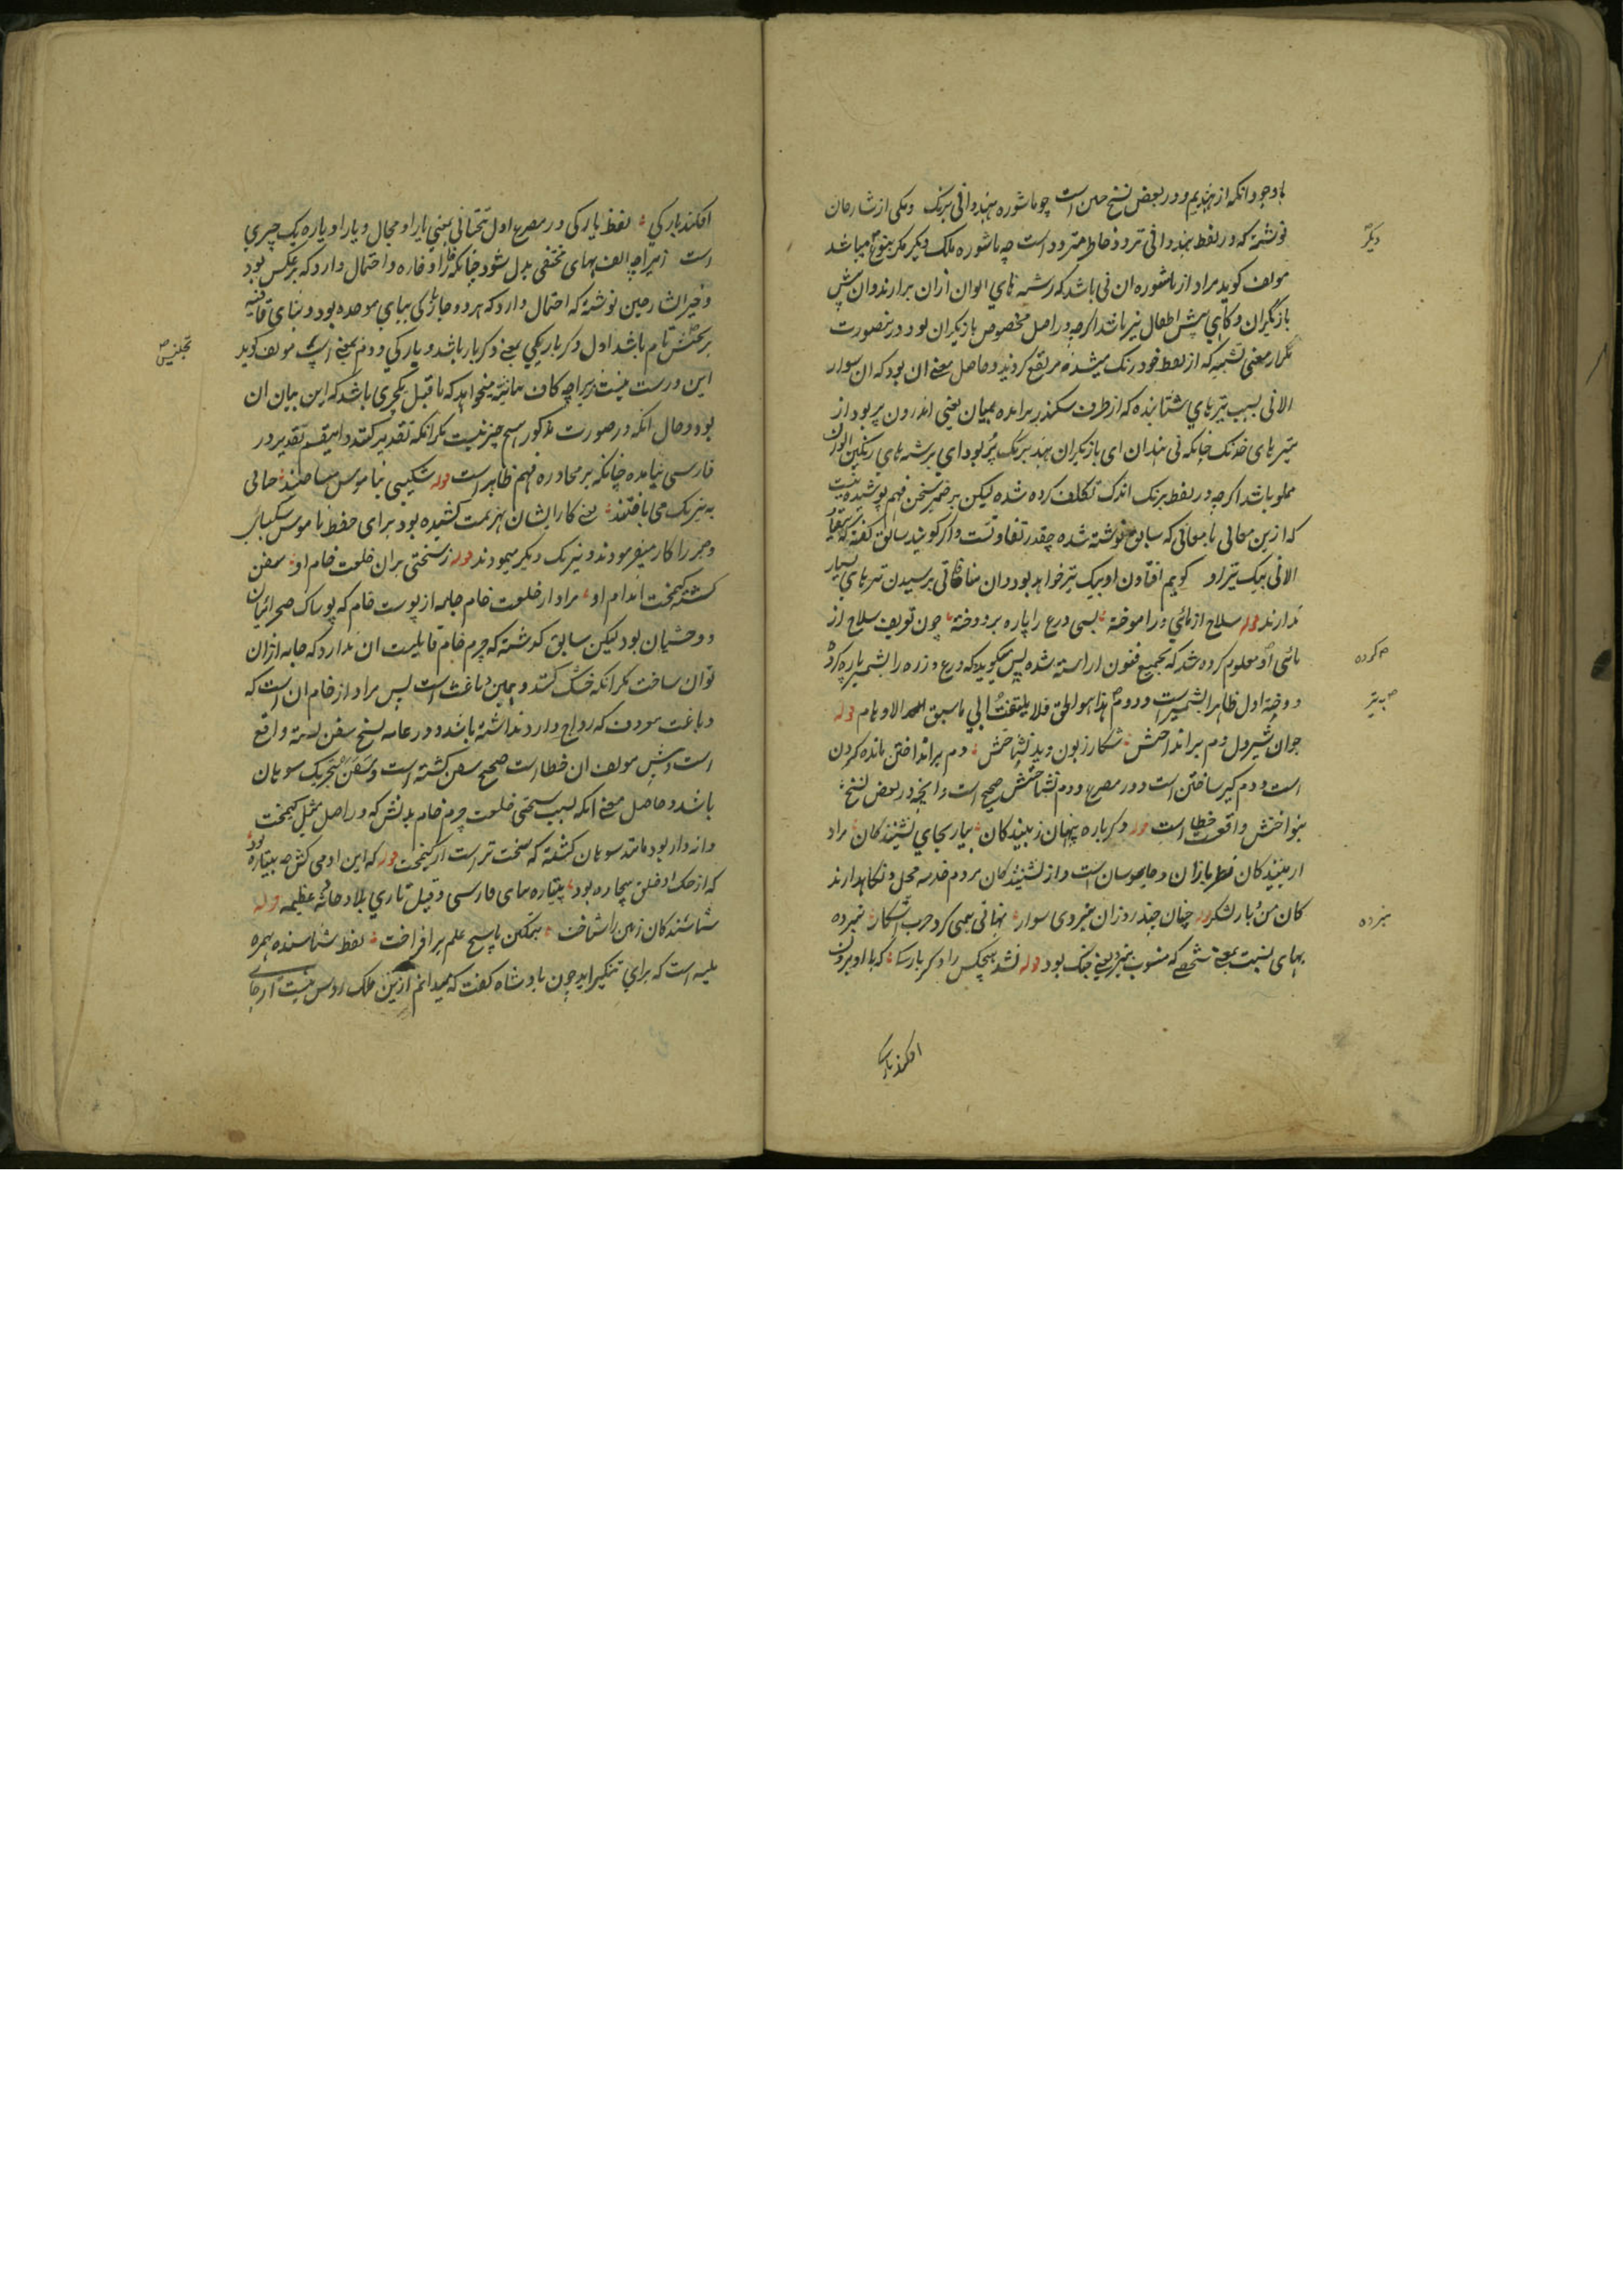 باوجود انکه از هندیم و در بعض نسخ چنین است چو ماشوره هندوانی برنک و یکی از شارحان
نوشته که در لفظ هندوانی تردد خاطر متردد است چه ماشوره ملک دیکر مکر بنوع میباشد
دیکر
مولف کوید مراد از ماشوره ان نی باشد که رشته های الوان ازان برارند و ان پیش
بازیکران و کاهی پیش اطفال نیز باشد اکرچه در اصل مخصوص بازیکران بود درینصورت
تکرار معنی تشبیه که از لفظ خود رنک میشد مرتفع کردید و حاصل معنی ان بود که ان سوار
الانی بسبب تیرهای شتابنده که از طرف سکندر برامده بمیان یعنی اندرون پر بود از
تیرهای خدنک چنانکه نی هندوان ای بازیکران هند برنک پُر بود ای برشته های رنکین الوان
مملو باشد اکرچه در لفظ برنک اندک تکلف کرده شده لیکن بر ضمیر سخن فهم پوشیده نیست
که ازین معانی با معانی که سابق نوشته شده چقدر تفاوتست و اکر کویند سابق کفته که
الانی بیک تیر او کویم افتادن او بیک تیر خواهد بود و ان منافاتی برسیدن تیرهای بسیار
ندارند قوله سلاح ازمائی در اموخته بسی درع را پاره بر دوخته چون تعریف سلاح از
مائی او معلوم کرده شد که بجمیع فنون اراسته شده پس میکوید که درع و زره را بشمشیر پاره کرد
کرده
و دوخته اول ظاهرا بشمشیر است و دوم هذا هو الحق فلا یلتفت الی ما سبق الاوهام قوله
به تیر
جوان شیردل دم بر انداختش شکار زبون دید نشناختش دم بر انداختن مانده کردن
است و دم کیر ساختن است و در مصرع دوم نشناختش صحیح است و انچه در بعض نسخ
بنواختش واقع خطا است قوله دکر باره پنهان ز بینندکان بیامد بجای نشینندکان مراد
از بینندکان نظربازان و جاسوسان است و از نشینندکان مردم خدمه محل و نکاهدارند
کان من بار لشکر قوله چنان چند روز ان نبردی سوار نهانی همی کرد حرب اشکار نبرده
نبرده
بهای نسبت بمعنی شخصی که منسوب بنبرد یعنی جنک بود قوله نشد هیچکس را دکر یارکی که با او برون
افکند بارکی
افکند بارکی لفظ یارکی در مصرع اول تحتانی بمعنی یارا و مجال و یارا و یاره یک چیزی
است زیراچه الف بهای مختفی بدل شود چنانکه خارا و خاره و احتمال دارد که برعکس بود
و خیرالشارحین نوشته که احتمال دارد که هر دو جا بارکی ببای موحده بود و بنای قافیه
بر تجنیس تام باشد اول دکر باریکی یعنی دکربار باشد و بارکی دوم بمعنی اسپ مولف کوید
تجنیس
این درست نیست زیراچه کاف بیانیه میخواهد که ماقبل چیزی باشد که این بیان ان
بود و حال انکه در صورت مذکور هیچ چیز نیست مکر انکه تقدیر کنند و اینقسم تقدیر در
فارسی نیامده چنانکه بر محاوره فهم ظاهر است قوله شکیبی بناموس میساختند حالی
به نیرنک می باختند یعنی کار ایشان بهزیمت کشیده بود برای حفظ ناموس شکیبائی
و جبر را کار میفرمودند و نیرنک دیکر میمودند قوله ز سختی بران خلعت خام او سفن
کشته کیمخت اندام او مراد از خلعت خام جامه از پوست خام که پوشاک صحرائیان
و وحشیان بود لیکن سابق کذشته که چرم خام قابلیت ان ندارد که جامه ازان
توان ساخت مکر انکه خشک کنند و همین دباغت است پس مراد از خام ان است که
دباغت نمودن که رواج دارد نداشته باشد و در عامه نسخ سفن بسته واقع
است و پیش مولف ان خطا است صحیح سفن کشته است و سَفَن بتحریک سوهان
باشد و حاصل معنی انکه بسبب سختی خلعت چرم خام بدنش که در اصل مثل کیمخت
دانه دار بود مانند سوهان کشته که سخت تر است از کیمخت قوله که این ادمی کش چه پتیاره بود
که از جنک او خلق بیچاره بود پتیاره ببای فارسی و قیل تازی بلا و حادثه عظیمه قوله
شناسندکان زمین را شناخت بتمکین پاسخ علم برافراخت لفظ شناسنده بهمزه
ملینه است که برای تنکیر اید چون بادشاه کفت که نمیدانم ازین ملک روس نیست از جای